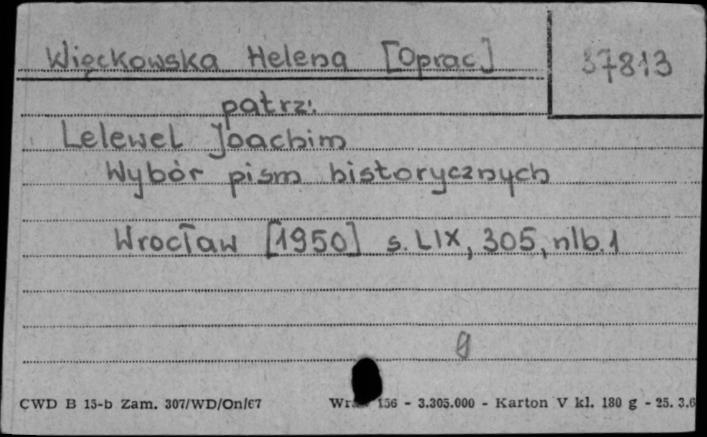 Więckowska Helena [Oprac]
37813
patrz:
Lelewel Joachim
Wybór pism historycznych
Wrocław [1950] s. LIX, 305, nlb. 1
g
CWD B 15-b Zam. 307/WD/On/67 156 - 3.305.000 - Karton V kl. 180 g - 25. 3.6